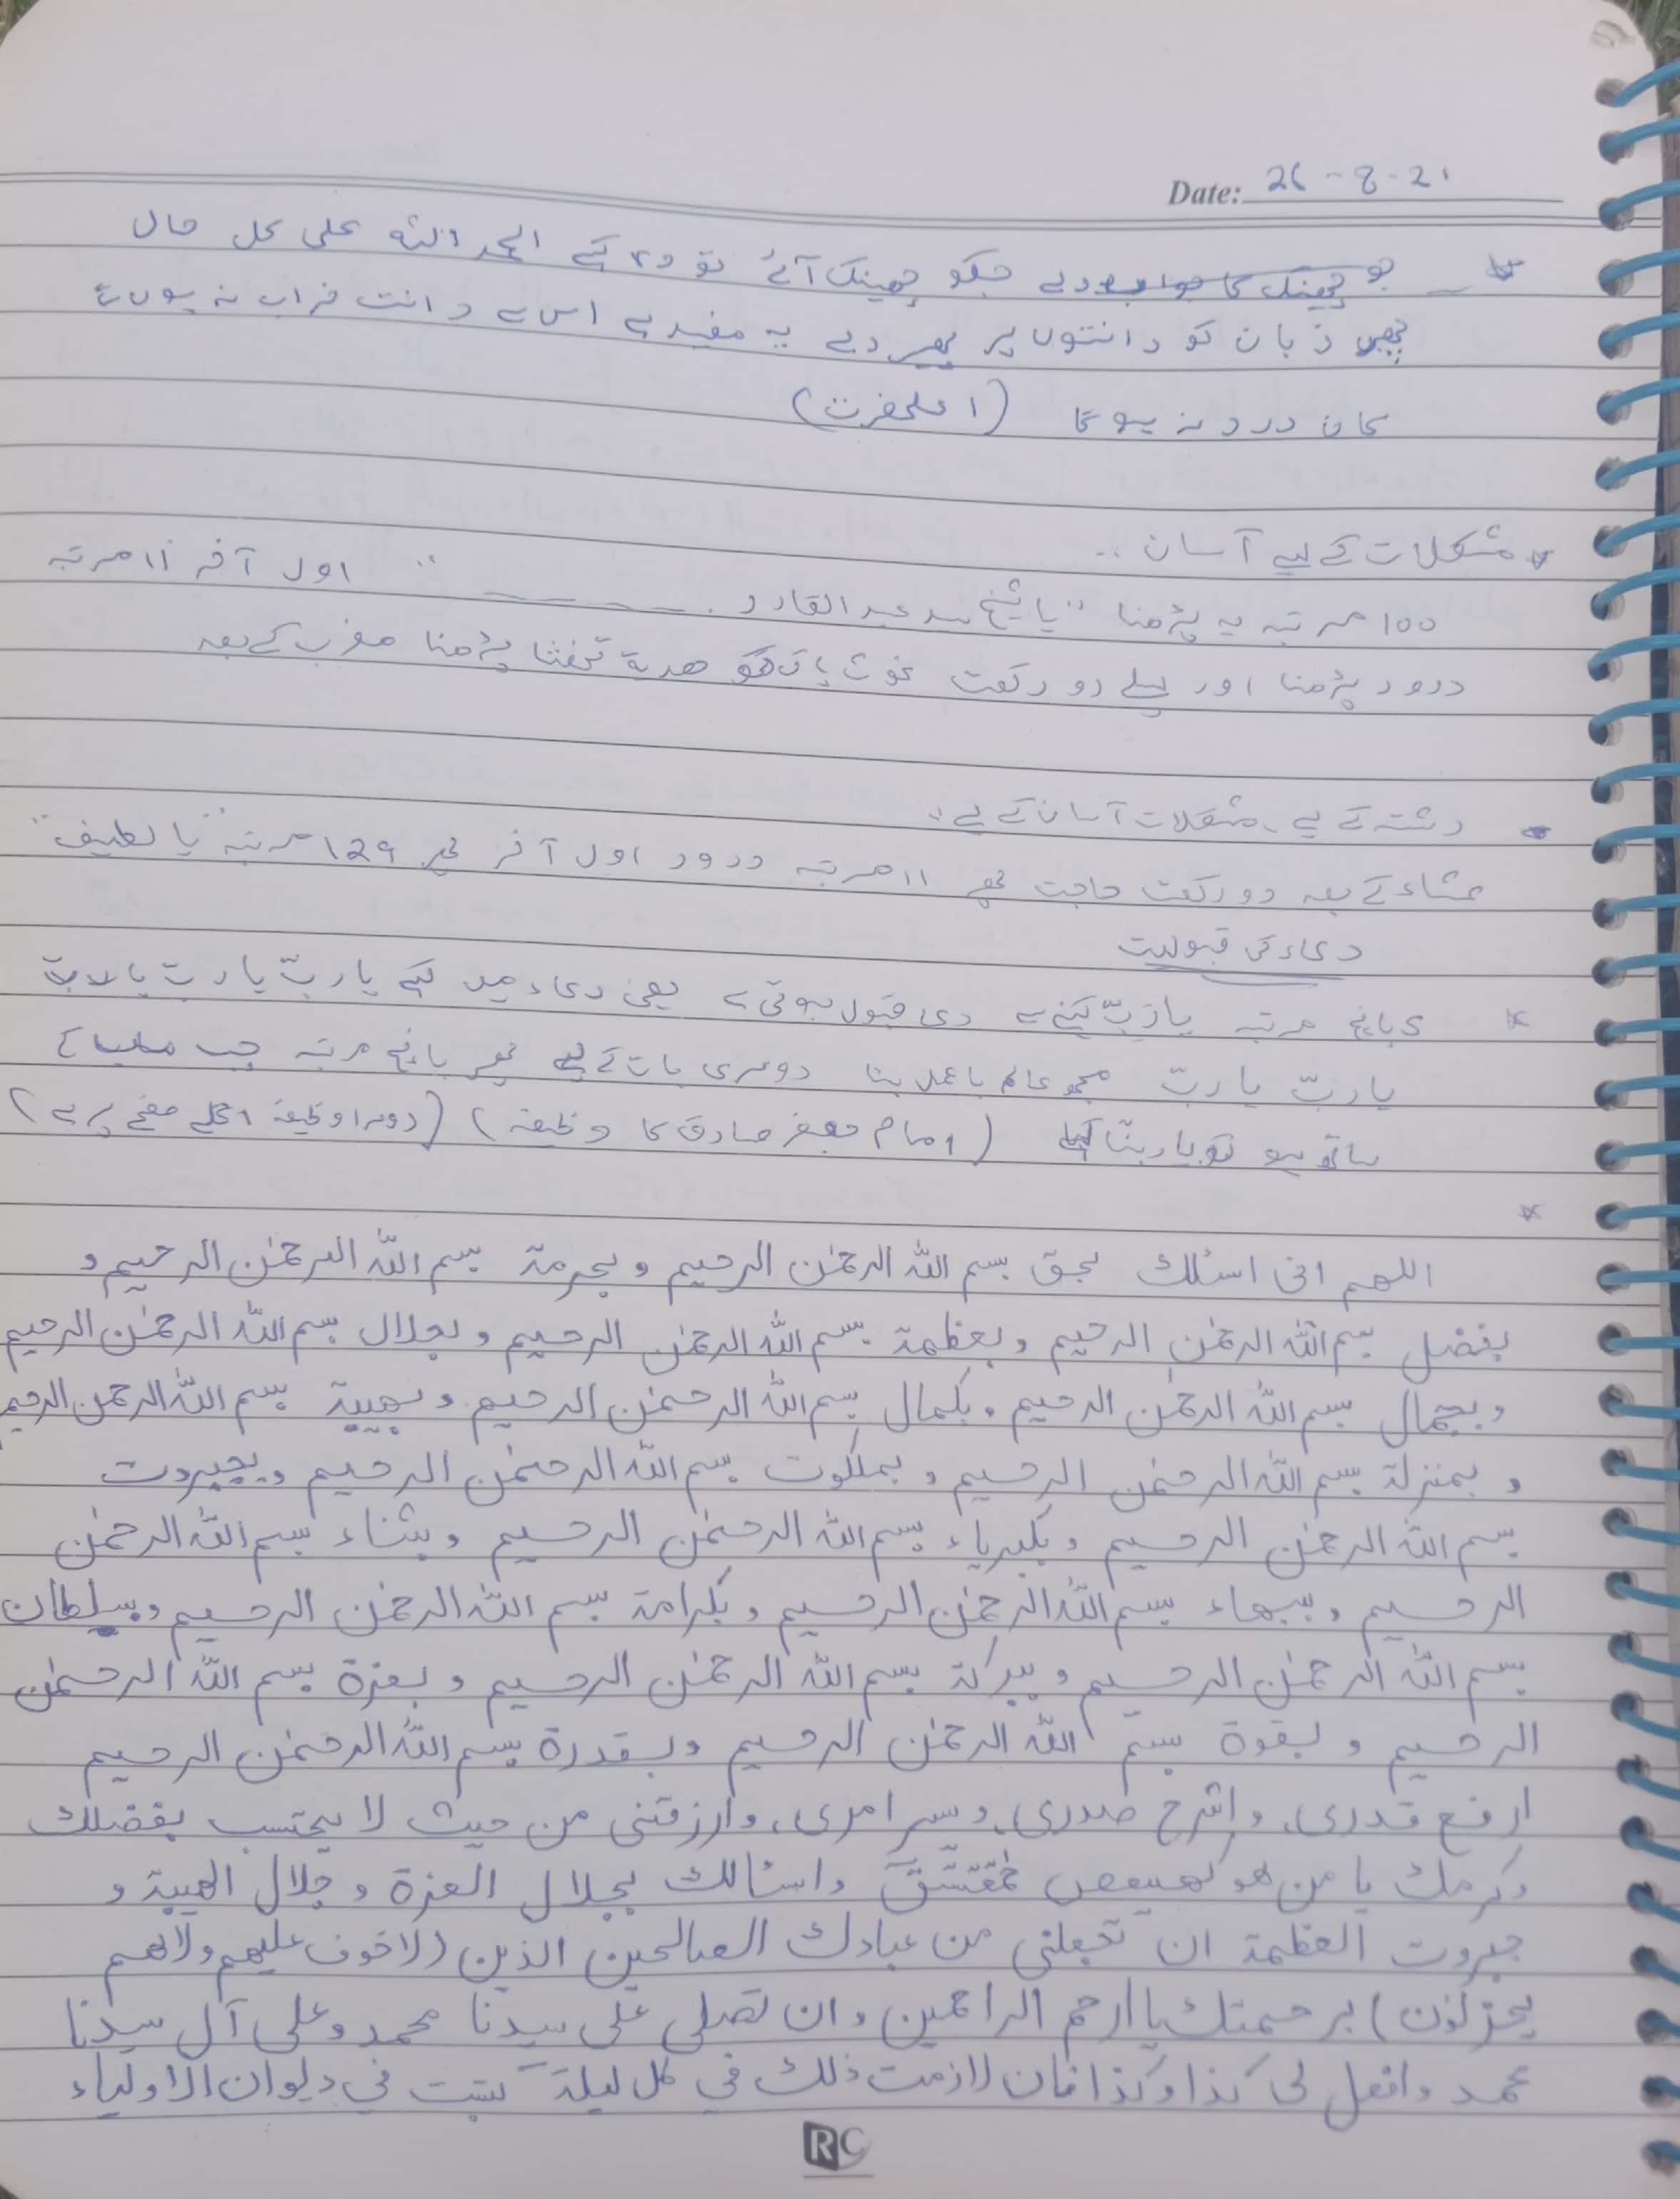 Date: 26-8-21
جو چھینک کا جواب دے جسکو چھینک آئے تو وہ کہے الحمد اللہ علی کل حال
پھر زبان کو دانتوں پر پھیر دے یہ مفید ہے اس سے دانت خراب نہ ہوں گے
کان درد نہ ہوگا (اعلحضرت)
مشکلات کے لیے آسان ..
100 مرتبہ یہ پڑھنا "یا شیخ سید عبد القادر ـــــــــ " اول آخر 11 مرتبہ
درود پڑھنا اور پہلے دو رکعت غوث پاک کو ھدیۃ تحفتا پڑھنا مغرب کے بعد
رشتہ کے لیے، مشکلات آسان کے لیے:
عشاء کے بعد دو رکعت حاجت پھر 11 مرتبہ درود اول آخر پھر 129 مرتبہ "یا لطیف"
دعاء کی قبولیت
پانچ مرتبہ یا ربّ کہنے سے دعا قبول ہوتی ہے یعنی دعاء میں کہے یا ربّ یا ربّ یا ربّ
یا ربّ یا ربّ مجھے عالم باعمل بنا دوسری بات کے لیے پھر پانچ مرتبہ جب
ساتھ ہو تو یا ربنّا کہے (امام جعفر صادق کا وظیفہ) (دوسرا وظیفہ اگلے صفحے پر ہے)
اللهم انی اسئلك بحق بسم اللہ الرحمٰن الرحیم و بحرمة بسم اللہ الرحمٰن الرحیم و
بفضل بسم اللہ الرحمٰن الرحیم و بعظمة بسم اللہ الرحمٰن الرحیم و بجلال بسم اللہ الرحمٰن الرحیم
و بجمال بسم اللہ الرحمٰن الرحیم و بکمال بسم اللہ الرحمٰن الرحیم و بھیبة بسم اللہ الرحمن الرحیم
و بمنزلة بسم اللہ الرحمٰن الرحیم و بملکوت بسم اللہ الرحمٰن الرحیم و بجبروت
بسم اللہ الرحمٰن الرحیم و بکبریاء بسم اللہ الرحمٰن الرحیم و بثناء بسم اللہ الرحمٰن
الرحیم و ببهاء بسم اللہ الرحمٰن الرحیم و بکرامة بسم اللہ الرحمٰن الرحیم و بسلطان
بسم اللہ الرحمٰن الرحیم و ببرکة بسم اللہ الرحمٰن الرحیم و بعزة بسم اللہ الرحمٰن
الرحیم و بقوة بسم اللہ الرحمٰن الرحیم و بقدرة بسم اللہ الرحمٰن الرحیم
ارفع قدری، واشرح صدری، و یسر امری، وارزقنی من حیث لا یحتسب بفضلك
وکرمك یا من هو کهیعص حمعسق و اسئالك بجلال العزة و جلال الهیبة و
جبروت العظمة ان تجعلنی من عبادك الصالحین الذین (لا خوف علیهم ولا هم
یحزنون) برحمتك یا ارحم الراحمین وان تصلی علی سیدنا محمد وعلی آل سیدنا
محمد وافعل لی کذا وکذا فان لازمت ذلك في کل لیلة کتبت في دیوان الاولیاء
RC